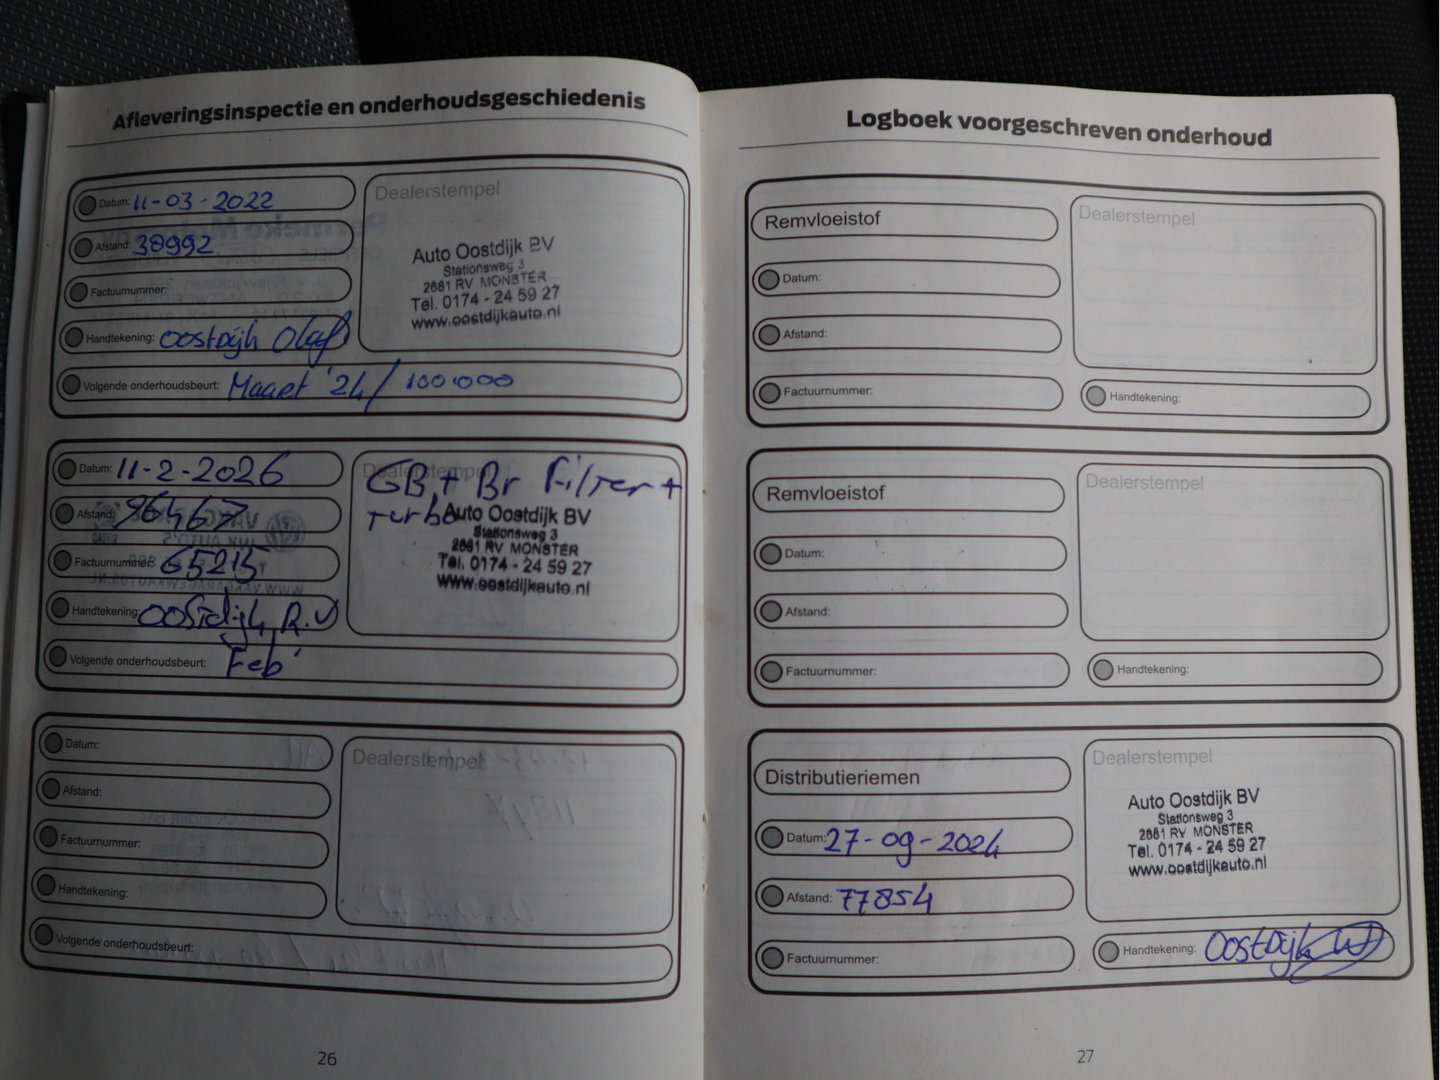 Afleveringsinspectie en onderhoudsgeschiedenis
Datum: 11-03-2022
Afstand: 38992
Factuurnummer:
Handtekening: Oostdijk Olaf
Volgende onderhoudsbeurt: Maart '24/100.000
Dealerstempel
Auto Oostdijk BV
Stationsweg 3
2681 RV MONSTER
Tel. 0174 - 24 59 27
www.oostdijkauto.nl
Datum: 11-2-2026
Afstand: 96467
Factuurnummer: 65215
Handtekening: Oostdijk R.V
Volgende onderhoudsbeurt: Feb'
Dealerstempel
GB + Br Filter +
turbo
Auto Oostdijk BV
Stationsweg 3
2681 RV MONSTER
Tel. 0174 - 24 59 27
www.oostdijkauto.nl
Datum:
Afstand:
Factuurnummer:
Handtekening:
Volgende onderhoudsbeurt:
Dealerstempel
26
Logboek voorgeschreven onderhoud
Remvloeistof
Datum:
Afstand:
Factuurnummer:
Dealerstempel
Handtekening:
Remvloeistof
Datum:
Afstand:
Factuurnummer:
Dealerstempel
Handtekening:
Distributieriemen
Datum: 27-09-2024
Afstand: 77854
Factuurnummer:
Dealerstempel
Auto Oostdijk BV
Stationsweg 3
2681 RV MONSTER
Tel. 0174 - 24 59 27
www.oostdijkauto.nl
Handtekening: Oostdijk
27